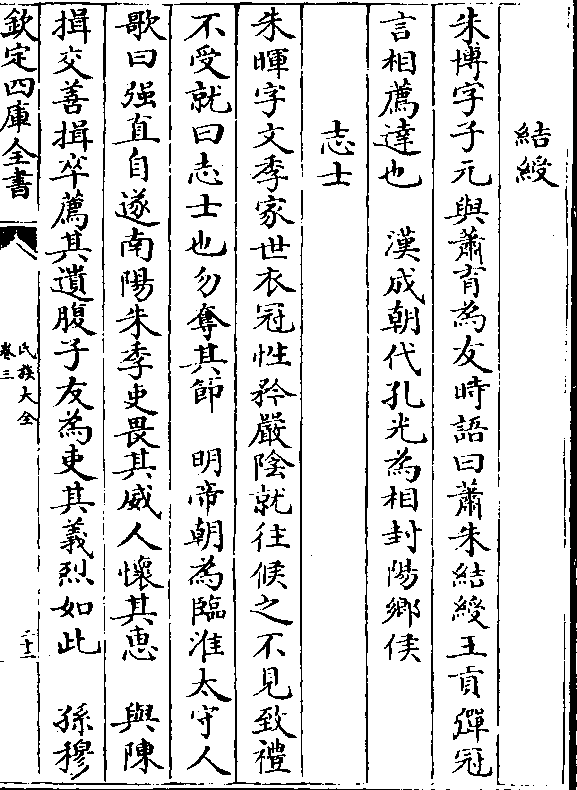 結綬
朱博字子元與蕭育為友時語曰蕭朱結綬王貢彈冠
言相薦達也　漢成朝代孔光為相封陽鄉侯
志士
朱暉字文季家世衣冠性矜嚴陰就往候之不見致禮
不受就曰志士也勿奪其節　明帝朝為臨淮太守人
歌曰强直自遂南陽朱季吏畏其威人懷其惠　與陳
揖交善揖卒薦其遺腹子友為吏其義烈如此　孫穆
欽定四庫全書
氏族大全
卷三
三十二